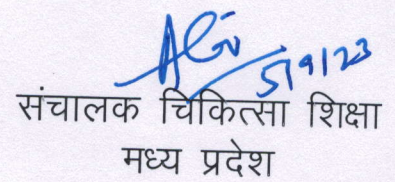 5/9/23
संचालक चिकित्सा शिक्षा
मध्य प्रदेश